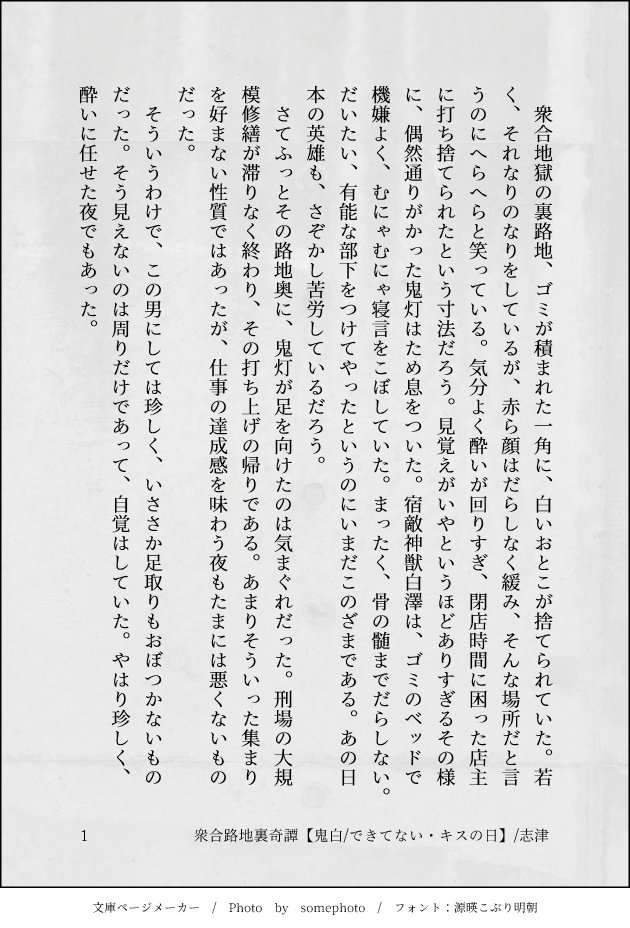 衆合地獄の裏路地、ゴミが積まれた一角に、白いおとこが捨てられていた。若
く、それなりのなりをしているが、赤ら顔はだらしなく緩み、そんな場所だと言
うのにへらへらと笑っている。気分よく酔いが回りすぎ、閉店時間に困った店主
に打ち捨てられたという寸法だろう。見覚えがいやというほどありすぎるその様
に、偶然通りがかった鬼灯はため息をついた。宿敵神獣白澤は、ゴミのベッドで
機嫌よく、むにゃむにゃ寝言をこぼしていた。まったく、骨の髄までだらしない。
だいたい、有能な部下をつけてやったというのにいまだこのざまである。あの日
本の英雄も、さぞかし苦労しているだろう。
　さてふっとその路地奥に、鬼灯が足を向けたのは気まぐれだった。刑場の大規
模修繕が滞りなく終わり、その打ち上げの帰りである。あまりそういった集まり
を好まない性質ではあったが、仕事の達成感を味わう夜もたまには悪くないもの
だった。
　そういうわけで、この男にしては珍しく、いささか足取りもおぼつかないもの
だった。そう見えないのは周りだけであって、自覚はしていた。やはり珍しく、
酔いに任せた夜でもあった。
1
衆合路地裏奇譚【鬼白/できてない・キスの日】/志津
文庫ページメーカー　/　Photo　by　somephoto　/　フォント：源暎こぶり明朝